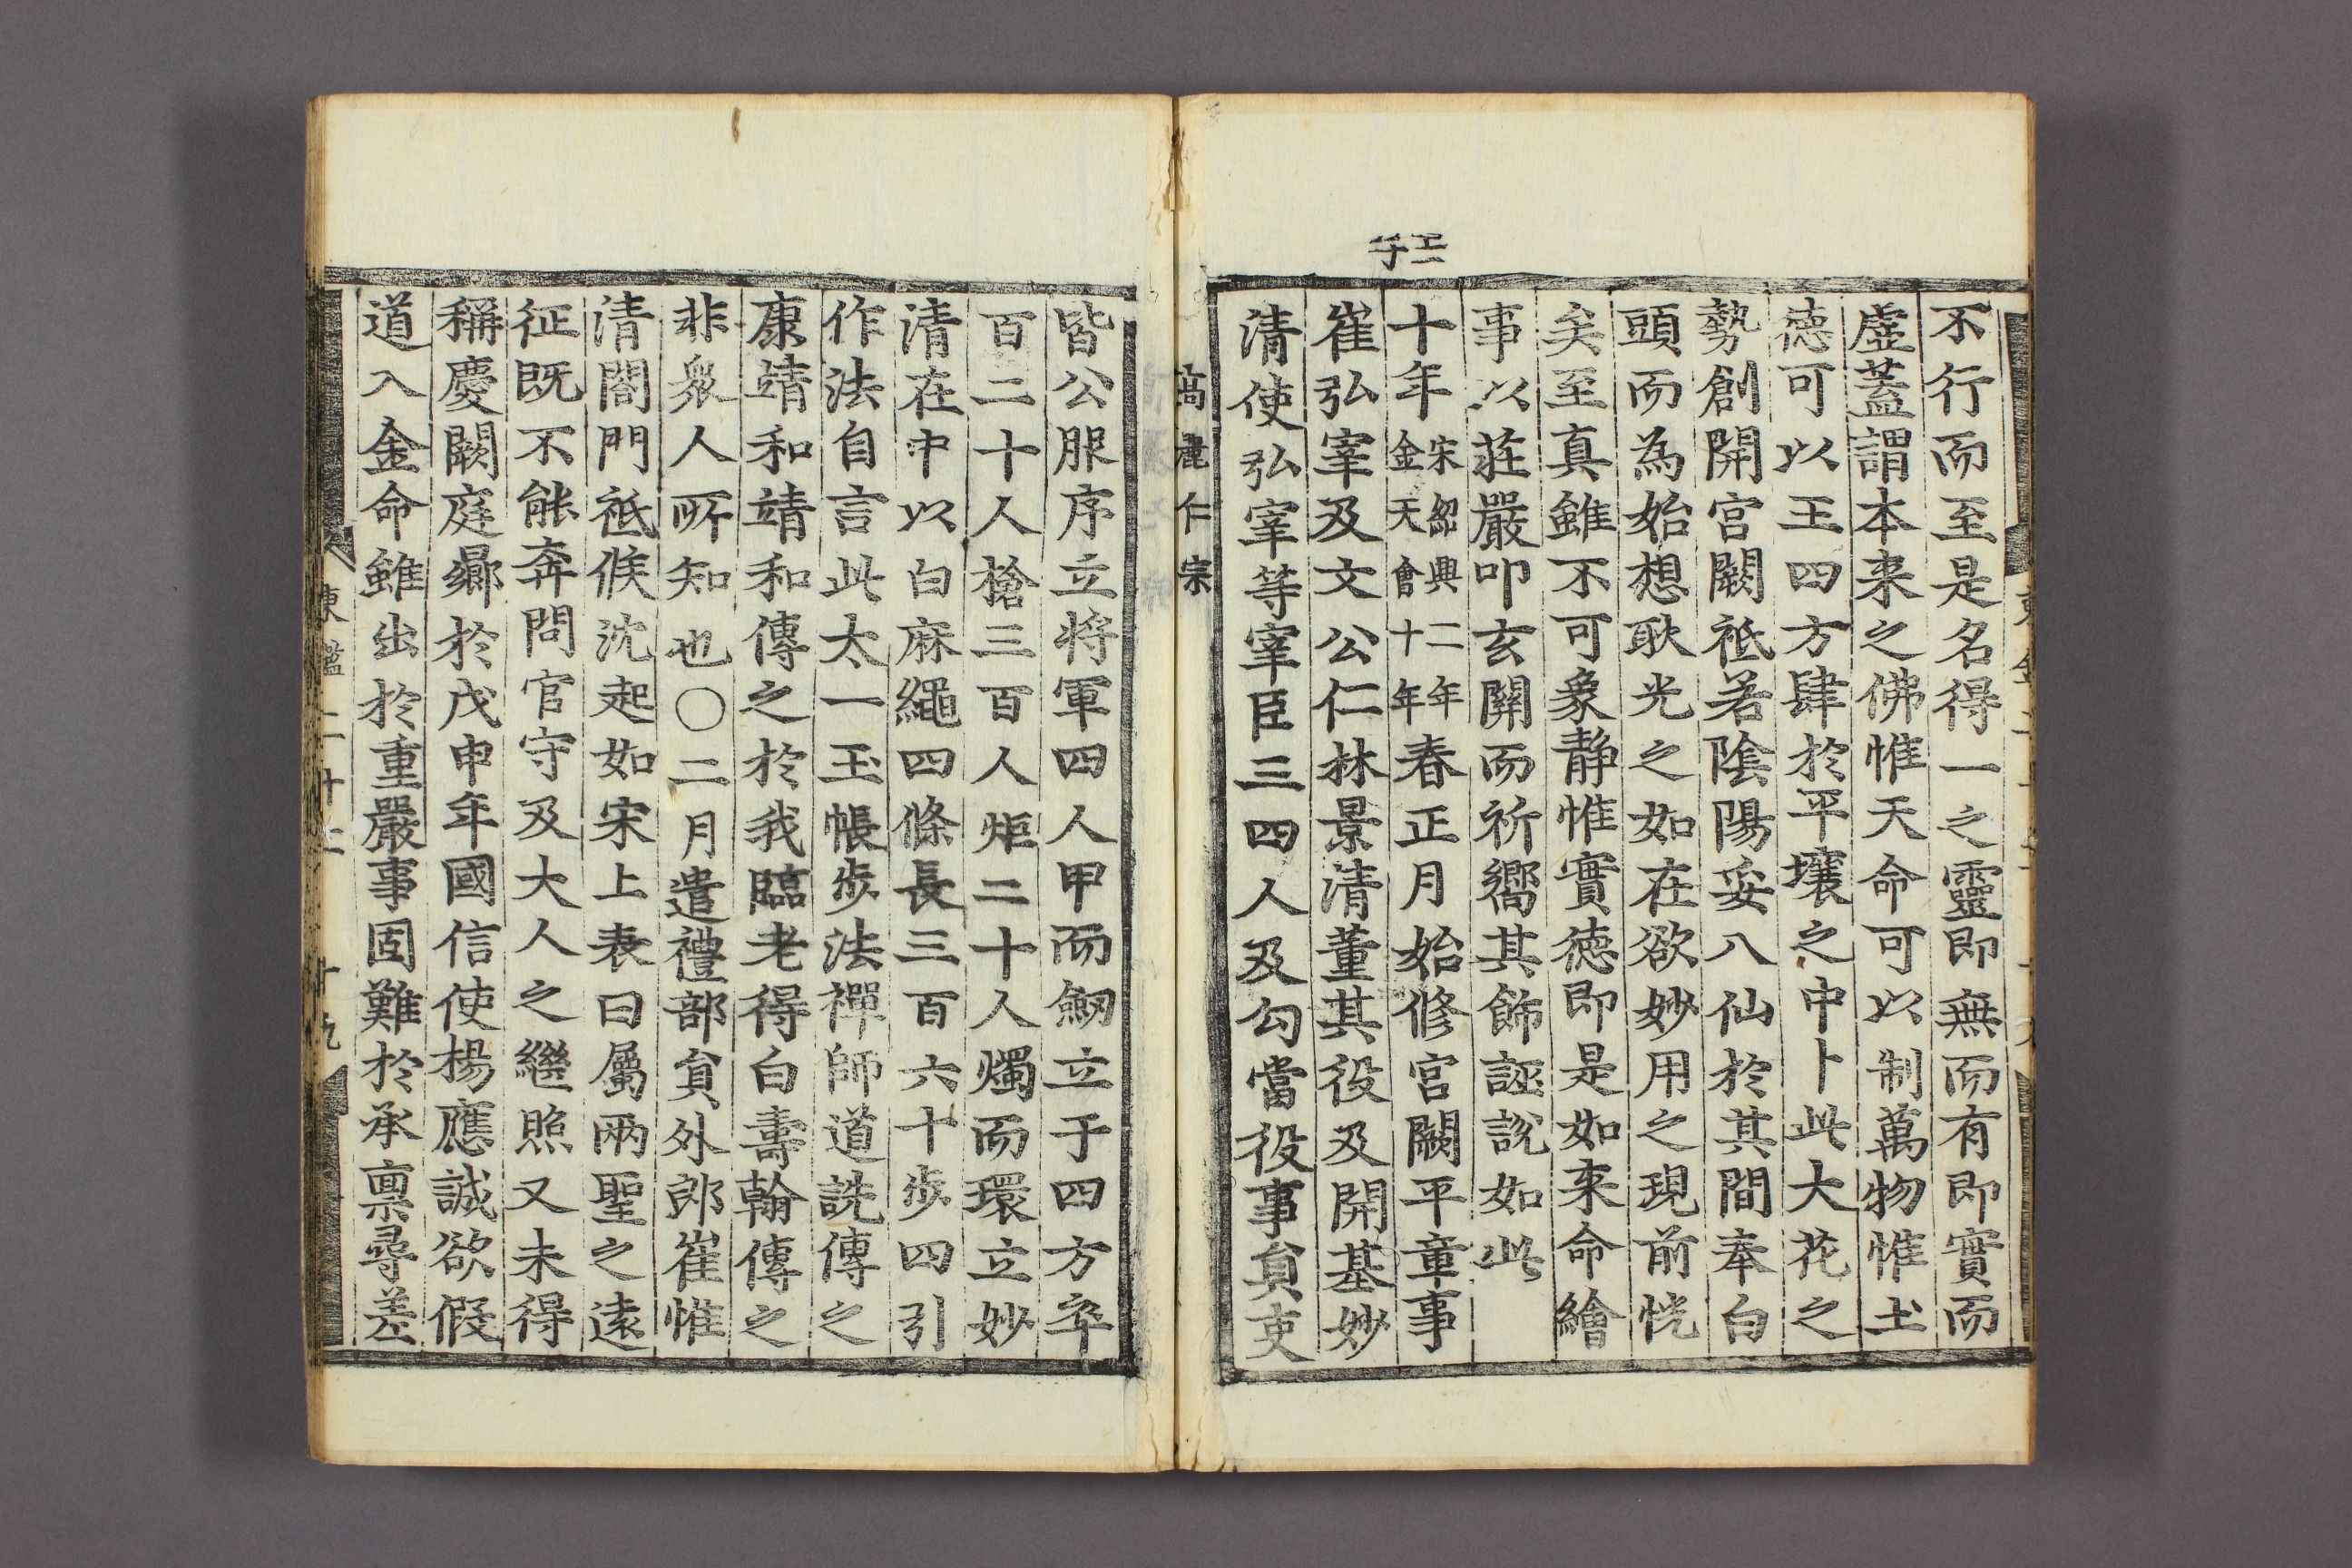 不行而至是名得一之靈即無而有即實而
虛蓋謂本来之佛惟天命可以制萬物惟土
德可以王四方肆於平壤之中卜此大花之
勢創開宮闕祗若陰陽妥八仙於其間奉白
頭而為始想耿光之如在欲妙用之現前恍
矣至真雖不可象静惟實德即是如来命繪
事以莊嚴叩玄關而祈嚮其飾誣說如此
壬子
十年宋紹興二年金天會十年春正月始修宮闕平章事
崔弘宰及文公仁林景清董其役及開基妙
清使弘宰等宰臣三四人及勾當役事負吏
高麗仁宗
皆公服序立将軍四人甲而劒立于四方卒
百二十人槍三百人炬二十人燭而環立妙
清在中以白麻繩四條長三百六十步四引
作法自言此太一玉帳步法禪師道詵傳之
康靖和靖和傳之於我臨老得白壽翰傳之
非衆人所知也○二月遣禮部負外郎崔惟
清閤門祗候沈起如宋上表曰屬兩聖之遠
征既不能奔問官守及大人之繼照又未得
稱慶闕庭曏於戊申年國信使楊應誠欲假
道入金命雖出於重嚴事固難於承禀尋差
東鑑二十二 十九